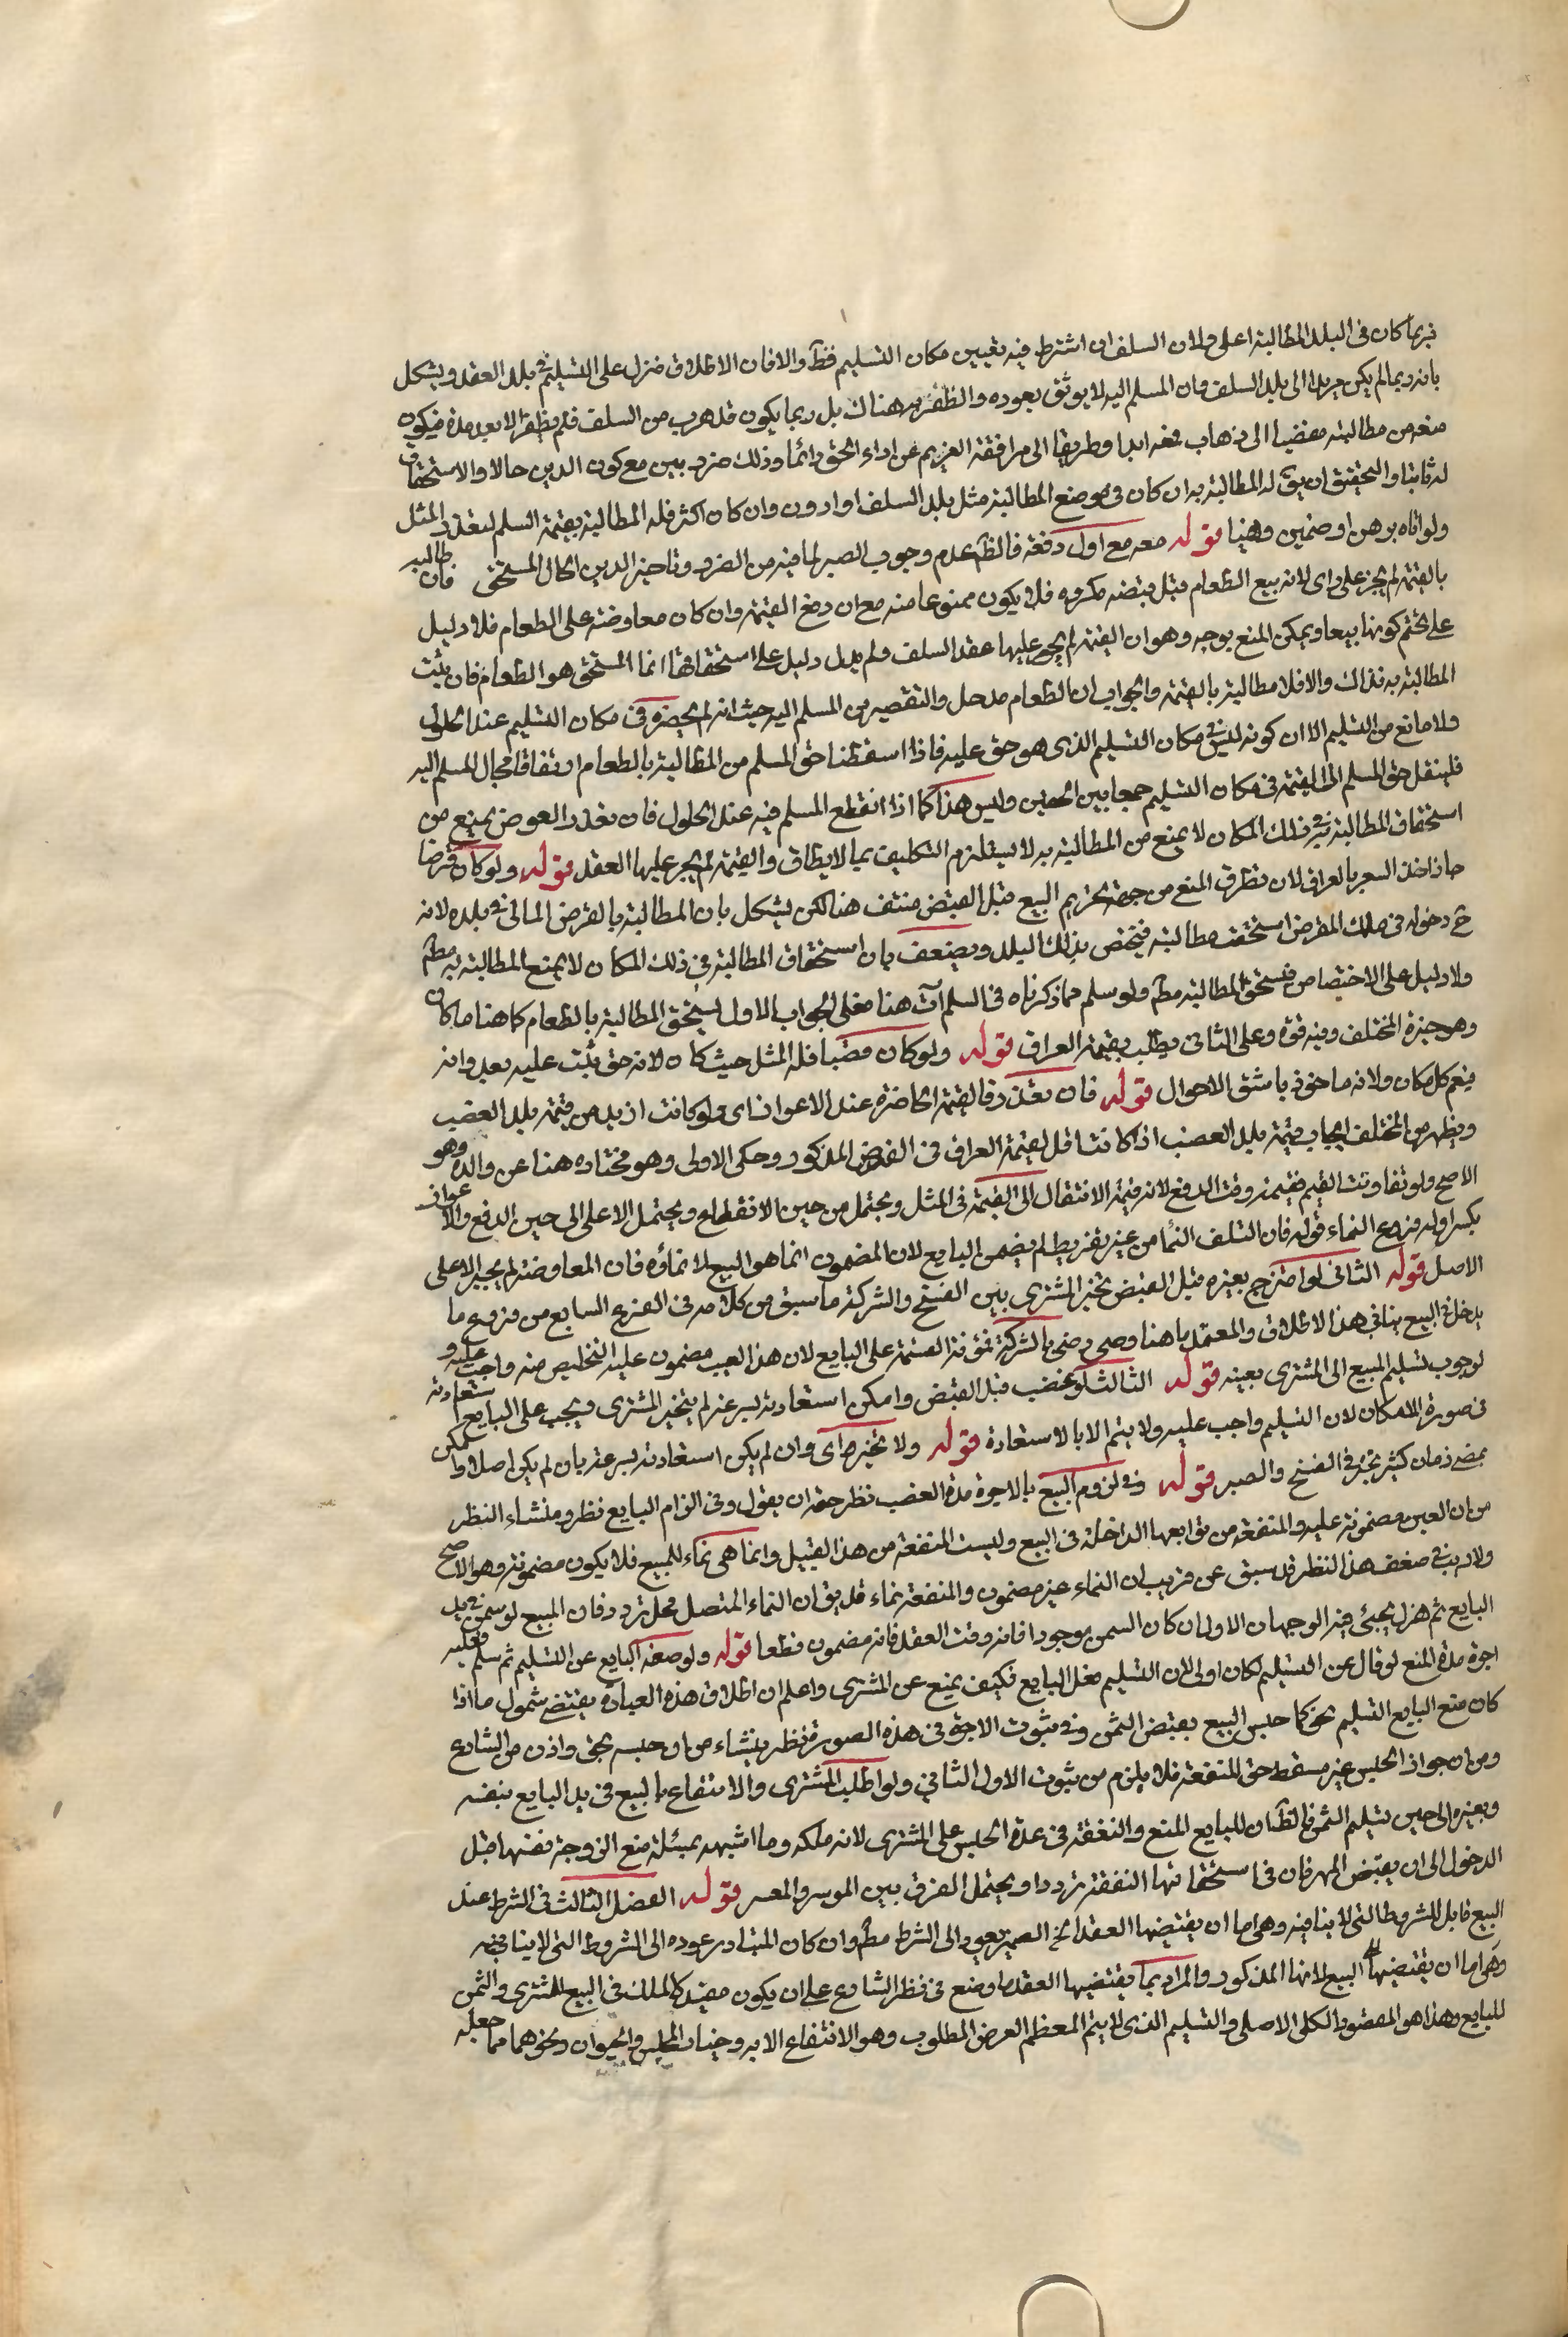 فربما كان في البلد المطالبة اعلى ولان السلف ان اشترط فيه تعيين مكان التسليم فظ والا فان الاطلاق منزل على التسليم في بلد العقد ويشكل
بانه ربما لم يكن مريدا الى بلد السلف وان المسلم اليه لا يوثق بعوده والظفر به هناك بل ربما يكون قد هرب من السلف فلم يظفر الا بعد مدة فيكون
منعه من مطالبته مفضيا الى ذهاب حقه ابدا وطريقا الى مرافقة الغريم عن اداء الحق دائما وذلك ضرر بين مع كون الدين حالا والاستحقاق
له ثابتا والتحقيق ان يق له المطالبة به ان كان في موضع المطالبة مثل بلد السلف او ادون وان كان اكثر فله المطالبة بقيمة السلم لتعذر المثل
ولو اتاه برهن او ضمين وهنا قوله معه مع اول دفعة فالظ عدم وجوب الصبر لما فيه من الضرر وتاخير الدين الحال المستحق فان طالبه
بالقيمة لم يجز على راى لانه بيع الطعام قبل قبضه مكروه فلا يكون ممنوعا منه مع ان دفع القيمة وان كان معاوضة على الطعام فلا دليل
على تحتم كونها بيعا ويمكن المنع بوجه وهو ان القيمة لم يجر عليها عقد السلف ولم يدل دليل على استحقاقها انما المستحق هو الطعام فان ثبت
المطالبة به فذاك والا فلا مطالبة بالقيمة والجواب ان الطعام قد حل والتقصير من المسلم اليه حيث انه لم يحضره في مكان التسليم عند الحلول
ولا مانع من التسليم الا ان كونه ليس في مكان التسليم الذى هو حق عليه فاذا اسقطنا حق المسلم من المطالبة بالطعام ارتفاقا بحال المسلم اليه
فلينقل حق المسلم الى القيمة في مكان التسليم جمعا بين الحقين وليس هذا كما اذا انقطع المسلم فيه عند الحلول فان تعذر العوض يمنع من
استحقاق المطالبة به في ذلك المكان لا يمنع من المطالبة به لاستلزام التكليف بما لا يطاق والقيمة لم يجر عليها العقد قوله ولو كان قرضا
جاز اخذ السعر بالعراق لان تطرق المنع من جهة تحريم البيع قبل القبض منتف هنا لكن يشكل بان المطالبة بالقرض المالى في بلده لانه
ح دخوله في ملك المقرض استحقت مطالبته فيختص بذلك البلد ويضعف بان استحقاق المطالبة في ذلك المكان لا يمنع المطالبة به مطلقا
ولا دليل على الاختصاص فيستحق المطالبة مط ولو سلم فما ذكرناه في السلم آت هنا فعلى الجواب الاول يستحق المطالبة بالطعام كما هنا ما كان
وهو خيرة المختلف وفيه قوة وعلى الثانى يطلب بقيمة العراق قوله ولو كان غصبا فله المثل حيث كان لانه حق ثبت عليه بعدوانه
فيعم كل مكان ولانه ماخوذ باشق الاحوال قوله فان تعذر فالقيمة الحاضرة عند الاعواز اى ولو كانت ازيد من قيمة بلد الغصب
ويظهر من المختلف ايجاب قيمة بلد الغصب اذا كانت اقل لقيمة العراق في الفرض المذكور وحكى الاولى وهو مختاره هنا عن والده وهو
الاصح ولو تفاوتت القيم فقيمته وقت الدفع لانه قيمة الانتقال الى القيمة في المثل ويحتمل من حين الانقطاع ويحتمل الاعلى الى حين الدفع والاعواز
بكسر اوله فروع النماء قوله فان التلف النماء من غير تفريط لم يضمن البايع لان المضمون انما هو المبيع لا نماؤه فان المعاوضة لم يجر الا على
الاصل قوله الثانى لو امتزج بغيره قبل القبض تخير المشترى بين الفسخ والشركة ما سبق من كلامه في الفرع السابع من فروع ما
يدخل في البيع ينافي هذا الاطلاق والمعتمد ما هنا ومتى رضى بالشركة فمؤنة القسمة على البايع لان هذا العيب مضمون عليه التخليص منه واجب عليه و
لوجوب تسليم المبيع الى المشترى بعينه قوله الثالث لو غصب قبل القبض وامكن استعادته بسرعة لم يتخير المشترى ويجب على البايع استعادته
في صورة الامكان لان التسليم واجب عليه ولا يتم الا بالاستعادة قوله ولا تخير اى وان لم يكن استعادته بسرعة بان لم يكن اصلا او امكن
بمضى زمان كثير تخير في الفسخ والصبر قوله وفي لزوم البيع بالاجرة مدة الغصب نظر حقه ان يقول وفي الزام البايع نظر ومنشاء النظر
من ان العين مضمونة عليه والمنفعة من توابعها الداخلة في البيع وليست المنفعة من هذا القبيل وانما هى نماء للمبيع فلا يكون مضمونة وهو الاصح
ولا ريب في ضعف هذا النظر قد سبق عن قريب ان النماء غير مضمون والمنفعة نماء قد يق ان النماء المتصل محل تردد فان المبيع لو سمن في يد
البايع ثم هزل يجيئ فيه الوجهان الاولى ان كان السمن موجودا فانه وقت العقد فانه مضمون قطعا قوله ولو منعه البايع عن التسليم ثم سلم فعليه
اجرة مدة المنع لو قال عن التسليم لكان اولى لان التسليم فعل البايع فكيف يمنع عن المشترى واعلم ان اطلاق هذه العبارة يقتضى شمول ما اذا
كان منع البايع التسليم بحق كما حبس المبيع بقبض الثمن وفي ثبوت الاجرة في هذه الصورة نظر ينشاء من ان حبسه بحق واذن من الشارع
ومن ان جواز الحبس غير مسقط حق المنفعة فلا يلزم من ثبوت الاول الثانى ولو اطلب المشترى والانتفاع بالمبيع في يد البايع بنفسه
وبغيره الى حين تسليم الثمن فالظ ان للبايع المنع والنفقة في مدة الحبس على المشترى لانه ملكه وما اشبهه بمسئلة منع الزوجة نفسها قبل
الدخول الى ان يقبض المهر فان في استحقاقها النفقة ترددا ويحتمل الفرق بين الموسر والمعسر قوله الفصل الثالث في الشرط عقد
البيع قابل للشروط التى لا ينافيه وهى اما ان يقتضيها العقد الخ الضمير يعود الى الشرط مط وان كان المتبادر عوده الى الشروط التى لا ينافيه
وهى اما ان يقتضيها البيع لانها المذكور والمراد بما يقتضيها العقد ما وضع في نظر الشارع على ان يكون مفيدا كالملك في المبيع للمشترى والثمن
للبايع وهذا هو المقصود الكلى الاصلى والتسليم الذى لا يتم المعظم الغرض المطلوب وهو الانتفاع الا به وخيار المجلس والحيوان ونحوهما مما جعله